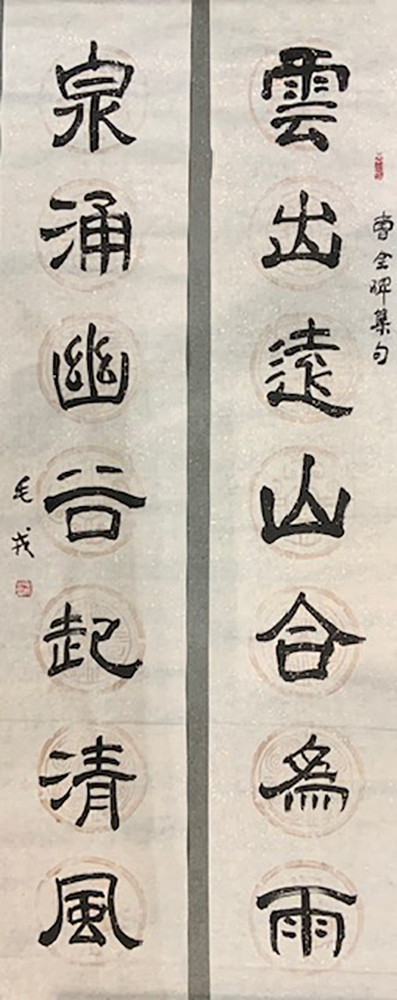 曹全碑集句
雲出遠山合為雨
泉涌幽谷起清風
毛戎